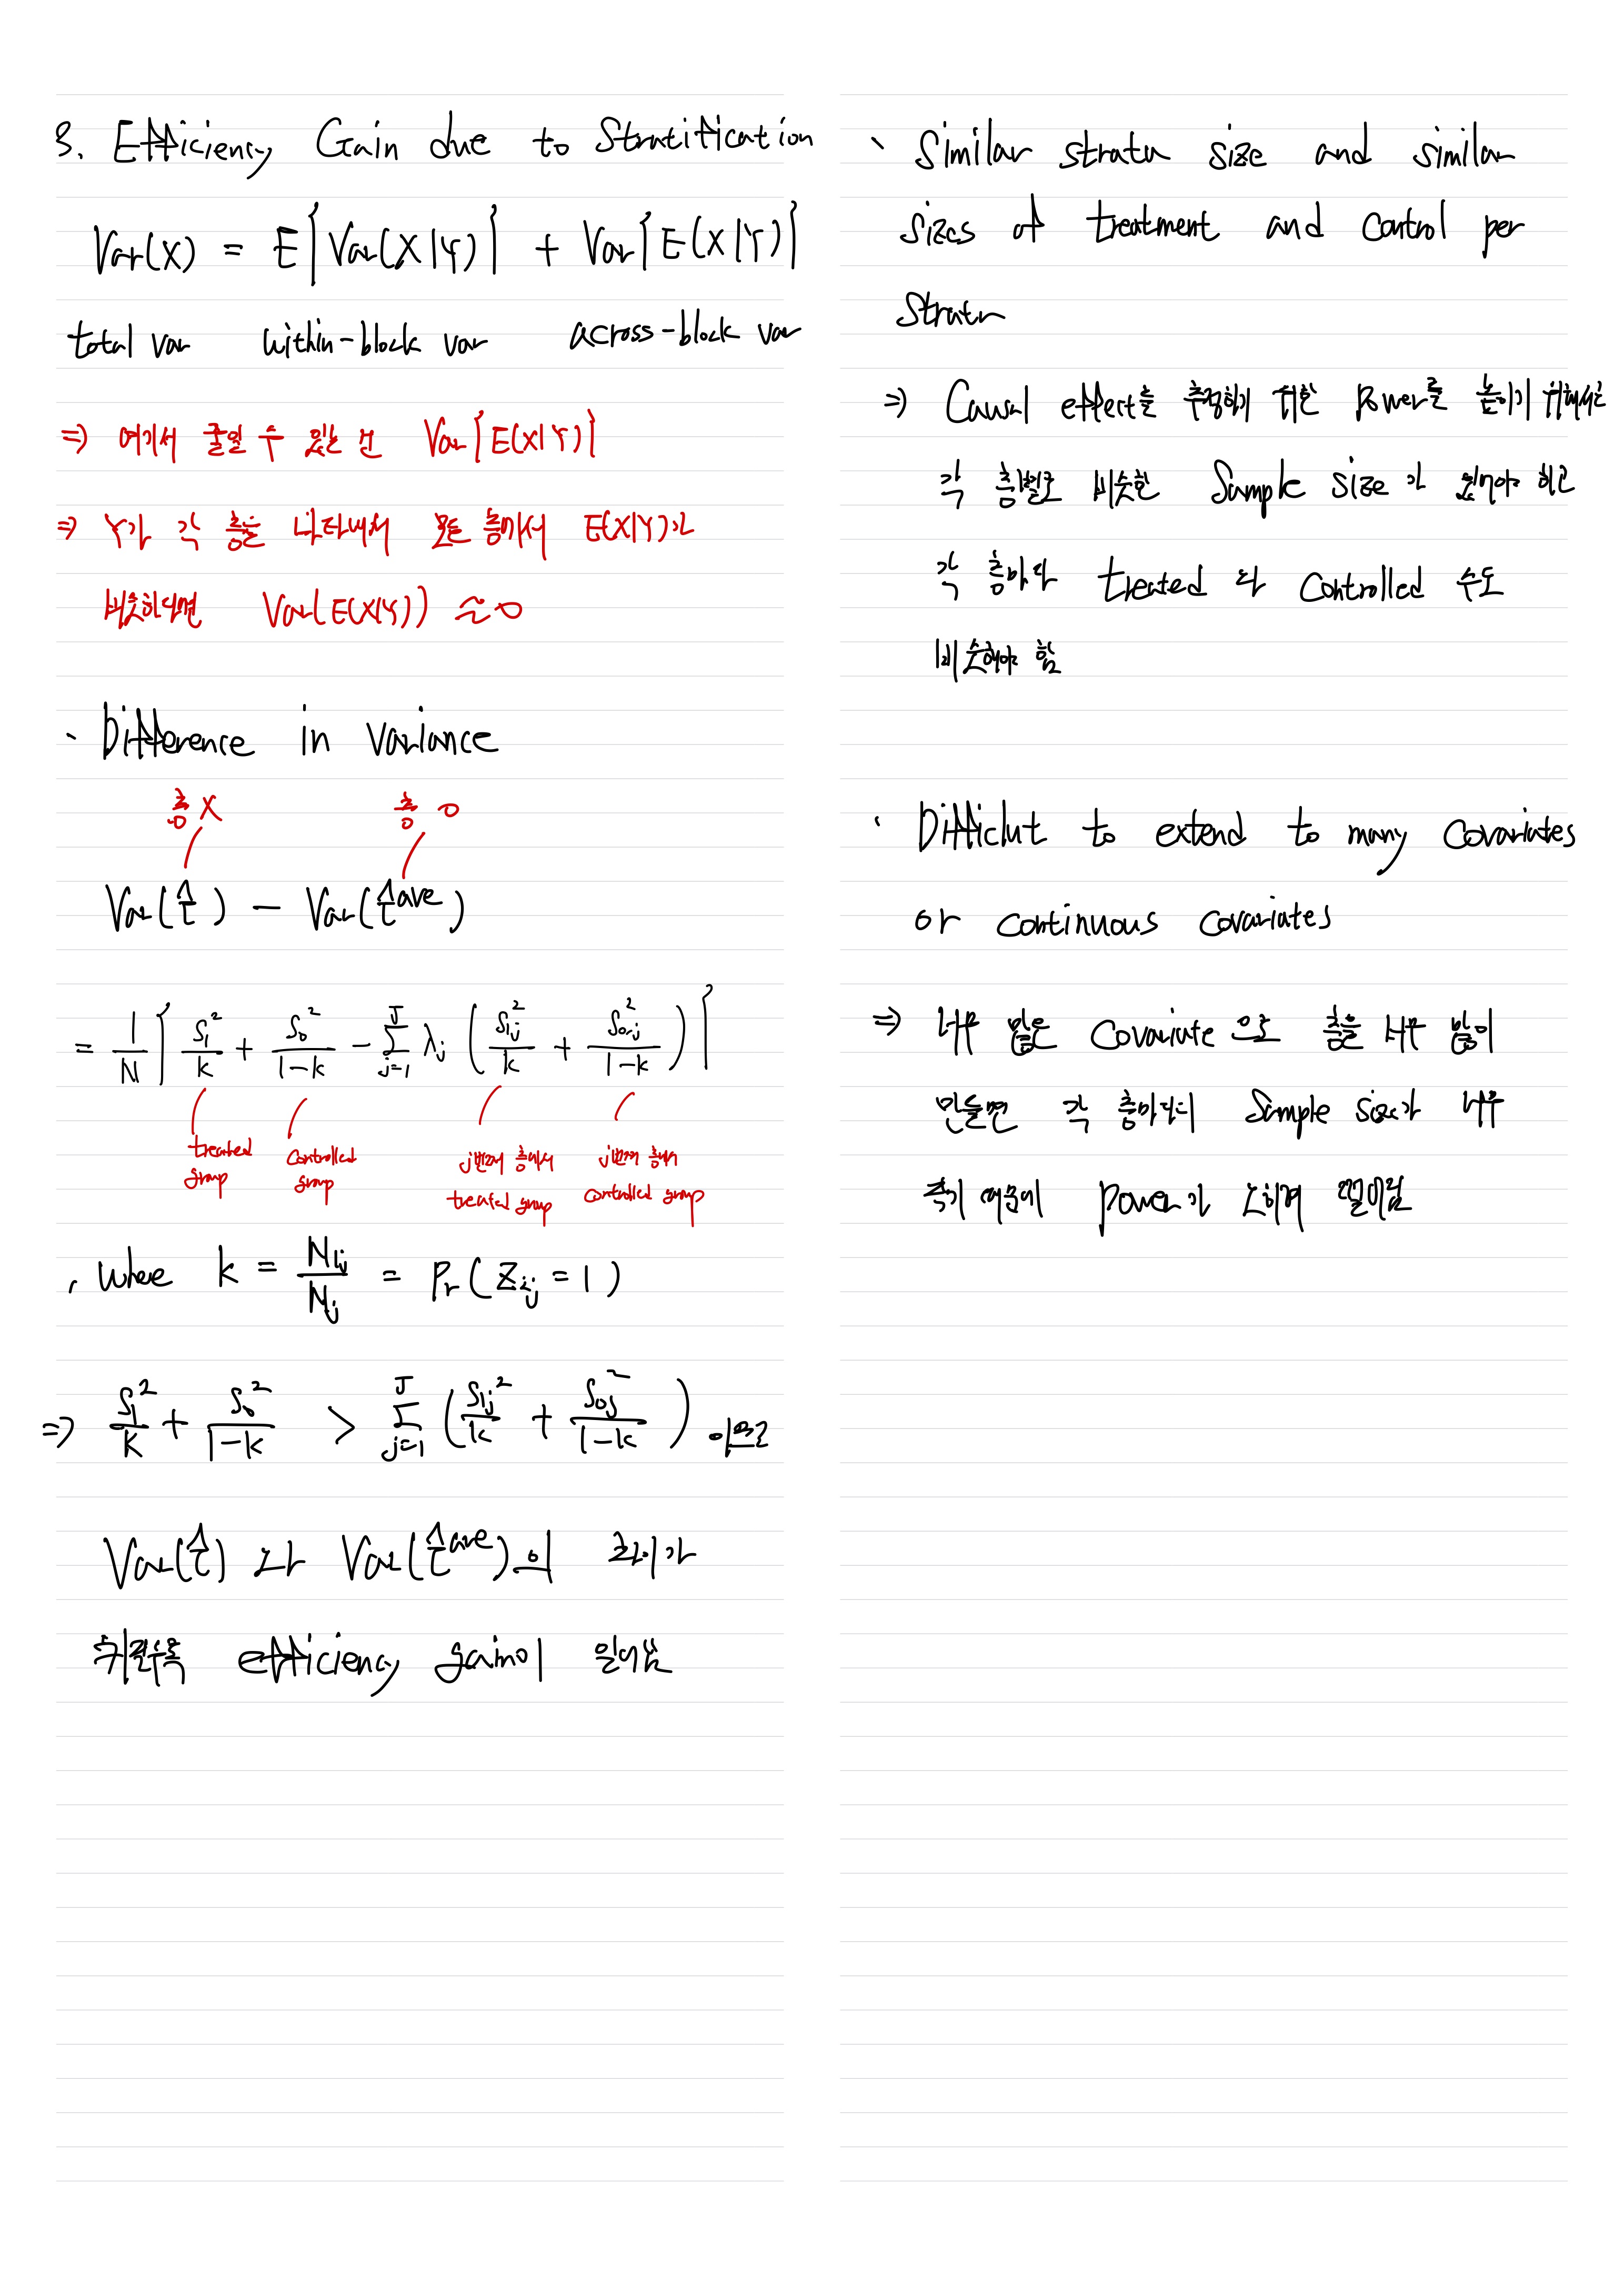 3. Efficiency Gain due to Stratification
Var(X) = E{Var(X|Y)} + Var{E(X|Y)}
total var within-block var across-block var
⇒ 여기서 줄일 수 있는 건 Var{E(X|Y)}
⇒ Y가 각 층을 나타내서 모든 층에서 E(X|Y)가
비슷하다면 Var(E(X|Y)) ≈ 0
· Difference in Variance
층 X 층 O
Var(τ̂) − Var(τ̂^ave)
= 1/N { S₁²/k + S₀²/(1−k) − Σ_{j=1}^{J} λ_j ( S₁ⱼ²/k + S₀ⱼ²/(1−k) ) }
treated group
controlled group
j번째 층에서 treated group
j번째 층에서 controlled group
, where k = N₁ⱼ/Nⱼ = Pr(Zᵢⱼ = 1)
⇒ S₁²/k + S₀²/(1−k) > Σ_{j=1}^{J} ( S₁ⱼ²/k + S₀ⱼ²/(1−k) ) 이므로
Var(τ̂) 과 Var(τ̂^ave)의 차이가
커질수록 efficiency gain이 일어남
· Similar strata size and similar
sizes of treatment and control per
strata
⇒ Causal effect를 추정하기 위한 power를 높이기 위해서는
각 층별로 비슷한 Sample size가 있어야 하고
각 층마다 treated 와 controlled 수도
비슷해야 함
· Difficlut to extend to many covariates
or continuous covariates
⇒ 너무 많은 covariate 으로 층을 너무 많이
만들면 각 층마다의 Sample size가 너무
작기 때문에 power가 오히려 떨어짐